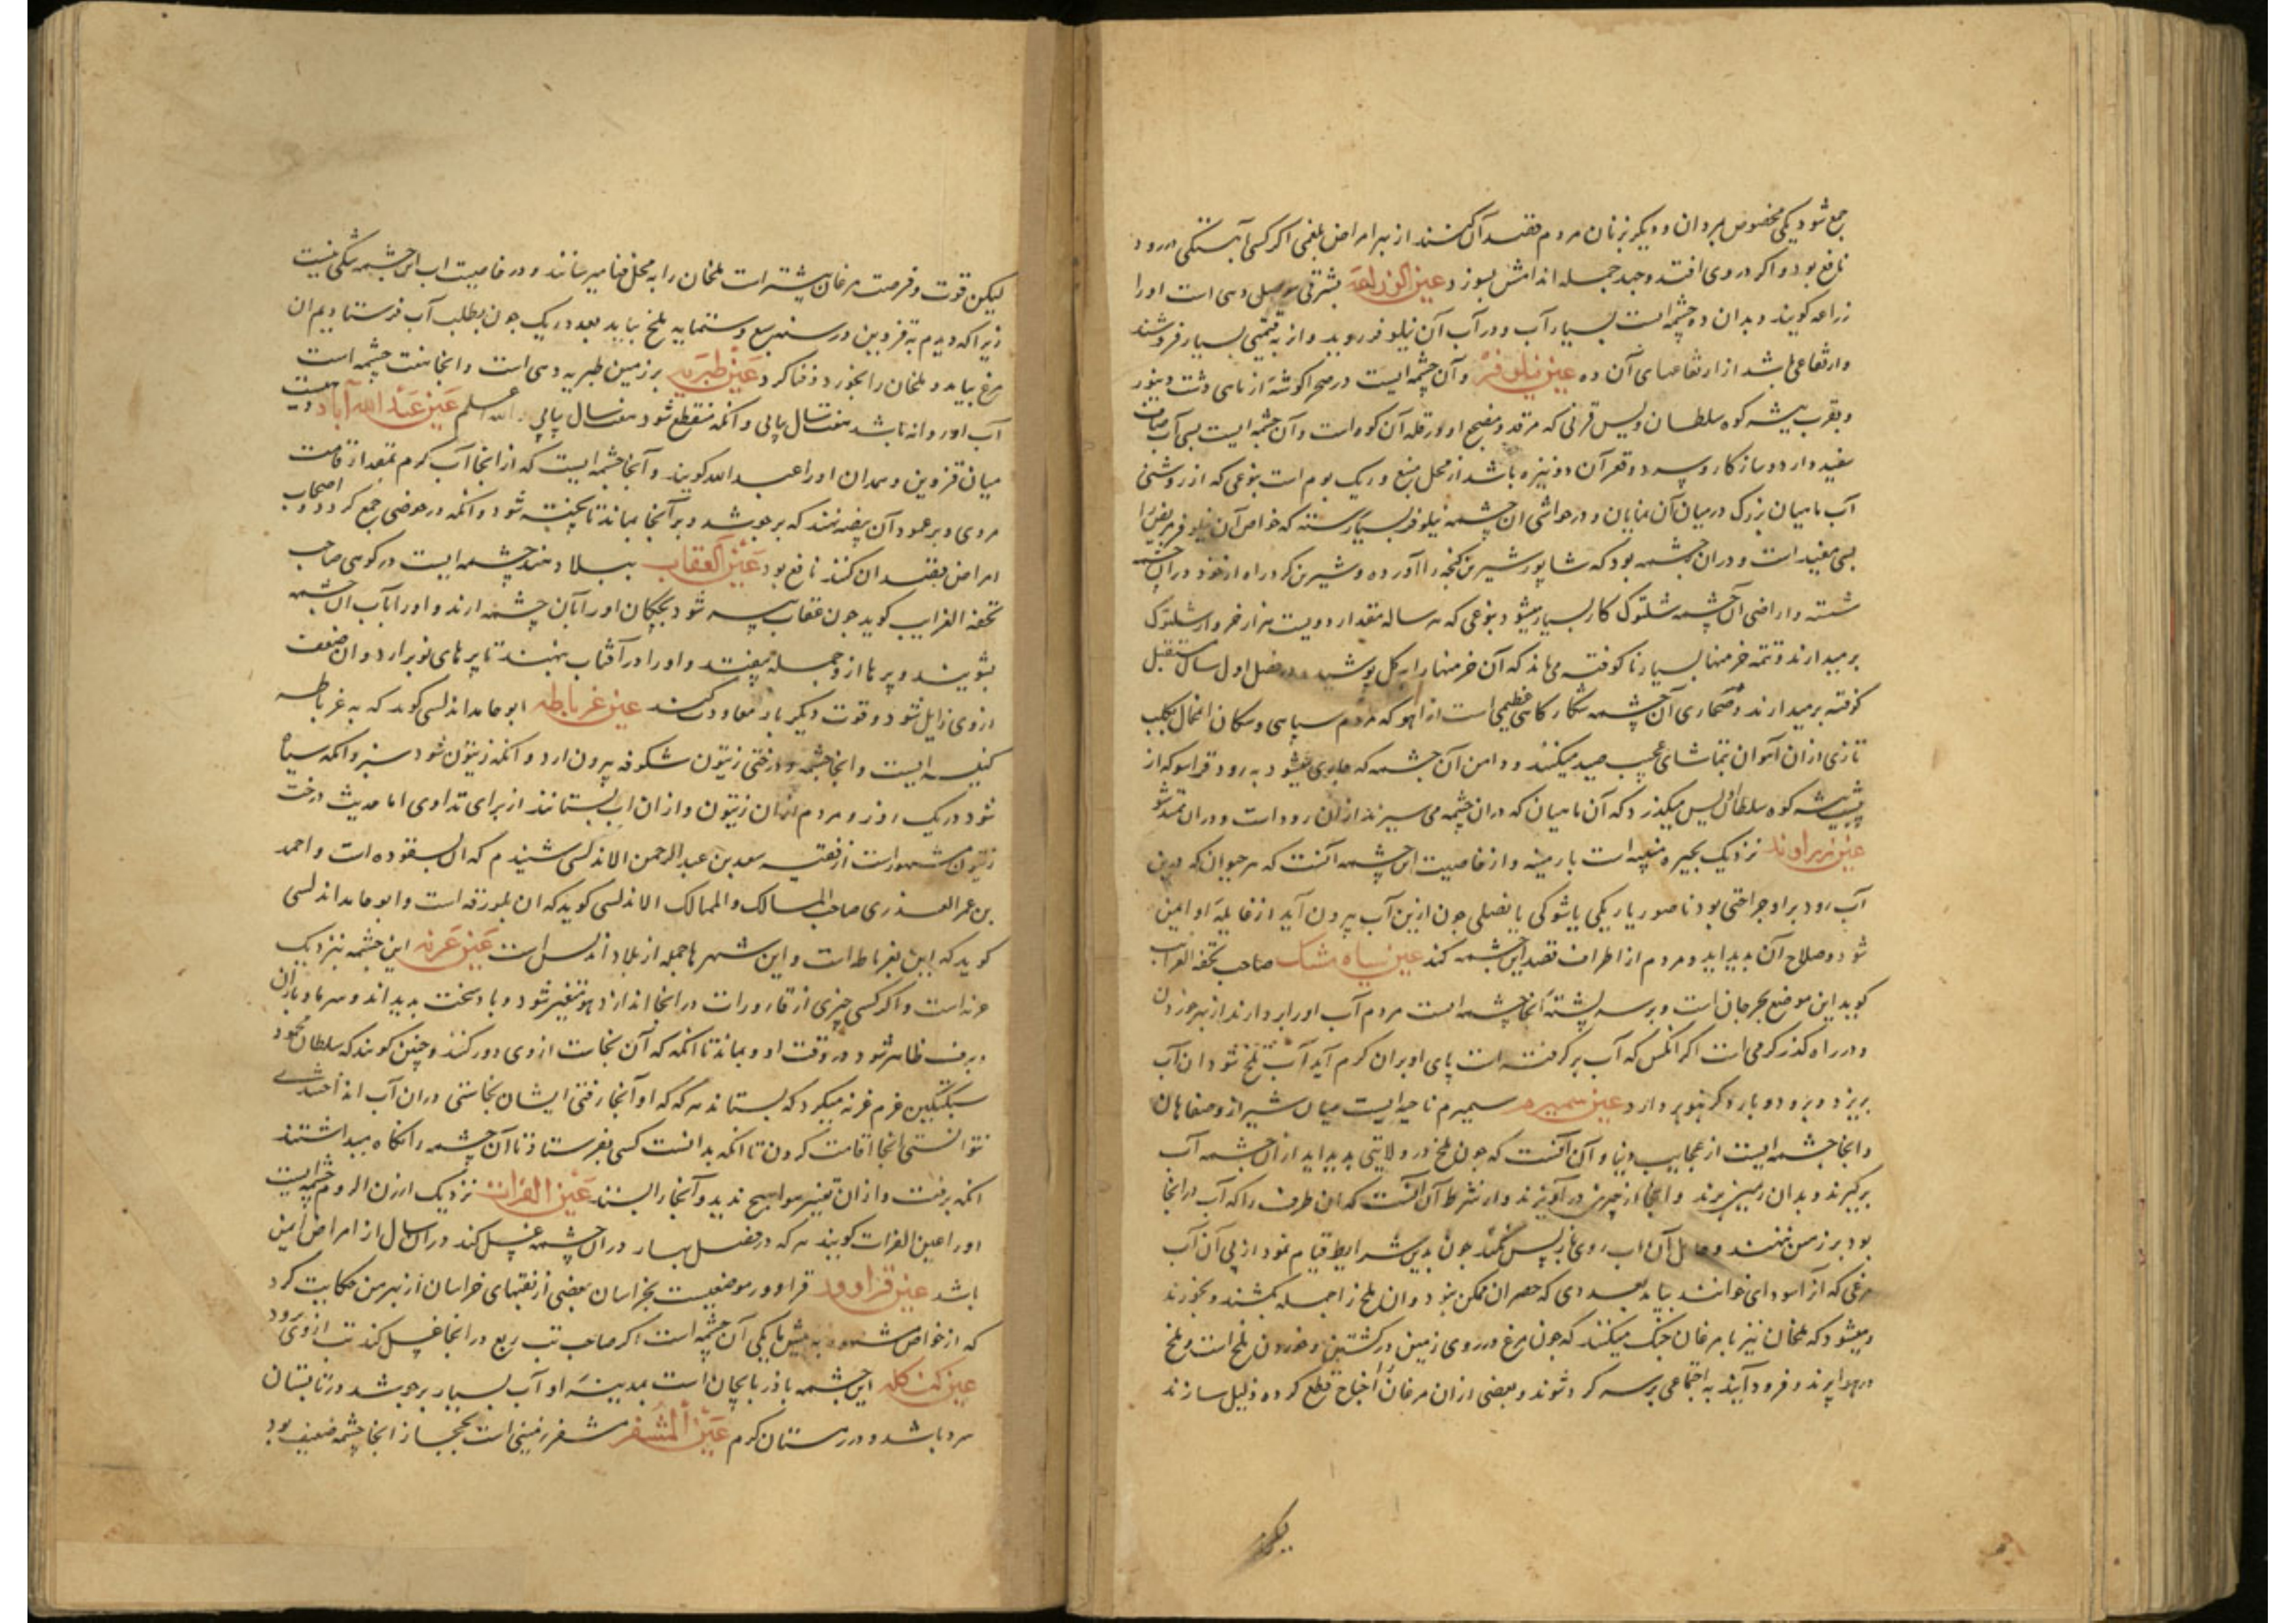 جمع شود یکی مخصوص بمردان و دیگر بزنان مردم قصد آن کنند از بهر امراض بلغمی اکر کسی آهستکی در رود
نافع بود و اکر در وی افتد و جهد جمله اندامش بسوزد عین الزراعة بشرقی موصل دهی است او را
زراعه کویند و بدان ده چشمه‌ایست بسیار آب و در آب آن نیلوفر روید و از به قیمتی بسیار فروشند
و ارتفاعی باشد از ارتفاعهای آن ده عین نیلوفر و آن چشمه ایست در صحرا کوشه از ماهی دشت دینور
و بقرب بیشه کوه سلطان ویس قرنی که مرقد و مضجع او در قله آن کوه است و آن چشمه ایست بسی آب صاف
سفید دارد و سازکار و سه دو قعر آن دو نیزه باشد از محل منبع و ریک بوم است بنوعی که از روشنی
آب ماهیان بزرک در میان آن نمایان و در حواشی ان چشمه نیلوفر بسیار رسته که خواص آن نیلوفر مریض را
بسی مفید است و در ان چشمه بود که شاپور شیرین کنجه را آورده و شیرین کرد راه از خود در ان چشمه
شسته و اراضی آن چشمه شلتوک کار بسیار میشود بنوعی که هر ساله مقدار دویست هزار خروار شلتوک
بر میدارند و تتمه خرمنها بسیار ناکوفته می‌ماند که آن خرمنها را به کل پوشیده و در فصل اول سال مستقبل
کوفته بر میدارند و صحاری آن چشمه شکارکاهی عظیمی است از اهو که مردم سپاهی و سکان انمحال بکلب
تازی از ان آهوان بتماشای عجیب صید میکنند و دامن آن چشمه که جاری میشود به رود قراسو که از
پیش بیشه کوه سلطان ویس میکذرد که آن ماهیان که در ان چشمه می سیرند از ان رود است و در ان شو
عین زراوند نزدیک بحیره است بارمینه و از خاصیت ان چشمه آنست که هر حیوان که درین
آب رود بر او جراحتی بود ناصور یا ریکی یا شوکی یا نصلی چون ازین آب بیرون آید از غایله او ایمن
شود و صلاح آن بدید آید و مردم از اطراف قصد این چشمه کند عین سیاه مشک صاحب تحفه الغرایب
کوید این موضع بجرجان است و بر سر پشته آنجا چشمه است مردم آب او را بر دارند از بهر خوردن
و در راه کذر کرمی است اکر انکس که آب بر کرفته است پای او بر ان کرم آید آب تلخ شود ان آب
بریزد و برود و باردیکر بر دارد عین سمیرم سمیرم ناحیه ایست میان شیراز و صفاهان
و انجا چشمه ایست از عجایب دنیا و آن آنست که چون ملخ در ولایتی بدید اید از ان چشمه آب
برکیرند و بدان زمین برند و انجا از چیزی در آویزند و از شرط آن آنست که ان ظرف را که آب در انجا
بود بر زمین ننهند و حامل آن اب روی باز پس نکند چون بدین شرایط قیام نمود از پی آن آب
مرغی که آنرا سودای خوانند بیاید بعددی که حصر ان ممکن نبود و ان ملخ را جمله بکشند و بخورند
و میشود که ملخان نیز با مرغان جنک میکنند که چون مرغ در روی زمین در کشتن و خوردن ملخ است و ملخ
در هوا پرند و فرود آیند به اجتماعی بر سر کرد شوند و بعضی از ان مرغان اجناح قطع کرده ذلیل سازند
لیکن
لیکن قوت و فرصت مرغان بیشتر است ملخان را به محل فنا میرسانند و در خاصیت اب این چشمه شکی نیست
زیرا که دیدم به قزوین در سنه سبع و ستمایه ملخ بیاید بعد دریک چون بطلب آب فرستادیم ان
مرغ بیاید و ملخان را بخورد و فنا کرد عین طبریه بر زمین طبریه دهی است و انجا هفت چشمه است
آب او روانه باشد هفت سال پیاپی و آنکه منقطع شود هفت سال پیاپی والله اعلم عین عبد الله آباد دهیست
میان قزوین و همدان او را عبد الله کویند و آنجا چشمه ایست که از انجا آب کرم بمقدار قامت
مردی و بر عمود آن بیضه نهند که بر جوشد و بر آنجا بماند تا پخته شود و انکه در حوضی جمع کردد و اصحاب
امراض قصد ان کنند نافع بود عین العقاب ببلاد هند چشمه ایست در کوهی صاحب
تحفه الغرایب کوید چون عقاب پیر شود بچکان او را بان چشمه ارند و او را بآب ان چشمه
بشویند و پرها از و جمله بیفتد و او را در آفتاب نهند تا پرهای نو بر ارد و ان ضعف
از وی زایل شود و قوت دیکر بار معاودت کند عین غرناطه ابو حامد اندلسی کوید که به غرناطه
کنیسه ایست و انجا چشمه و درختی زیتون شکوفه بیرون ارد و انکه زیتون شود سبز و انکه سیاه
شود در یک روز و مردم از ان زیتون و از ان اب بستانند از برای تداوی اما حدیث درخت
زیتون مشهور است از فقیه سعد بن عبد الرحمن الاندلسی شنیدم که ان بسقوده است و احمد
بن عمر العذری صاحب المسالک و الممالک الاندلسی کوید که ان بلورقه است و ابو حامد اندلسی
کوید که این بغرناطه است و این شهرها جمله از بلاد اندلس است عین غزنه این چشمه بنزدیک
غزنه است و اکر کسی چیزی از قاذورات در انجا اندازد هوا متغیر شود و باد سخت بدید اند و سرما و باران
و برف ظاهر شود در وقت او و بماند تا انکه که آن نجاست از وی دور کنند و چنین کویند که سلطان محمود
سبکتکین عزم غزنه میکرد که بستاند هر که که او آنجا رفتی ایشان نجاستی در ان آب انداختندی
نتوانستی انجا اقامت کردن تا انکه بدانست کسی بفرستاد تا آن چشمه را نکاه میداشتند
انکه برفت و از ان تغییر هوا هیچ ندید و آنجا را بستد عین الفرات نزدیک ارزن الروم چشمه ایست
او را عین الفرات کویند هر که در فصل بهار در ان چشمه غسل کند در ان سال از امراض ایمن
باشد عین قراوور قراوور موضعیست بخراسان بعضی از فقهای خراسان از بهر من حکایت کرد
که از خواص مشهور آن چشمه است اکر صاحب تب ربع در انجا غسل کند تب از وی برود
عین کنکله این چشمه باذربایجان است بمدینه او آب بسیار بر جوشد در تابستان
سرد باشد و در زمستان کرم عین المشفر مشفر زمینی است بحجاز انجا چشمه ضعیف بود